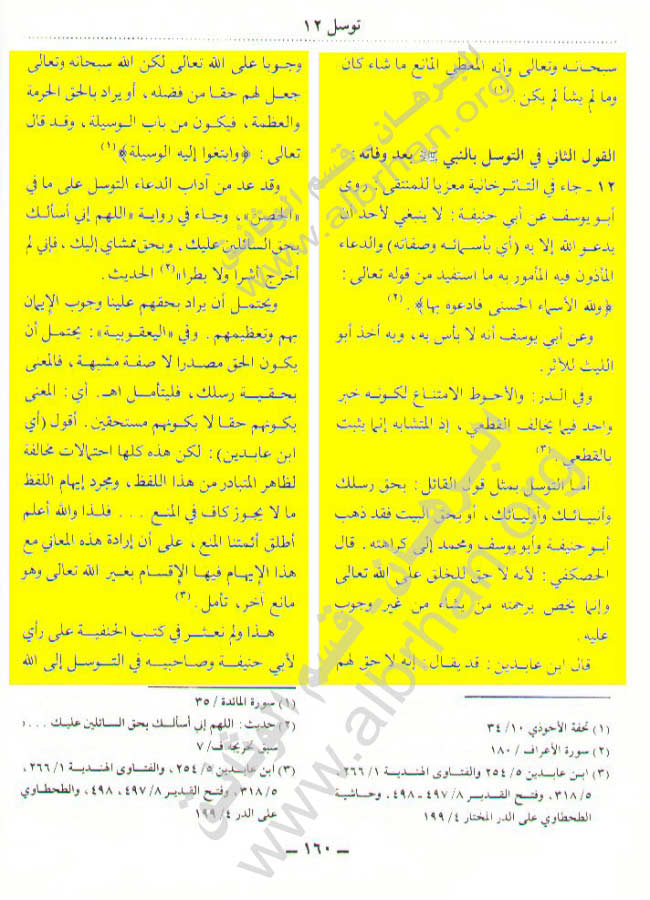 توسل ١٢
سبحانه وتعالى وأنه المعطي المانع ما شاء كان
وما لم يشأ لم يكن . (١)
القول الثاني في التوسل بالنبي ﷺ بعد وفاته :
١٢ - جاء في التاترخانية معزيا للمنتقى : روى
أبو يوسف عن أبي حنيفة : لا ينبغي لأحد أن
يدعو الله إلا به (أي بأسمائه وصفاته) والدعاء
المأذون فيه المأمور به ما استفيد من قوله تعالى :
﴿ولله الأسماء الحسنى فادعوه بها﴾ . (٢)
وعن أبي يوسف أنه لا بأس به ، وبه أخذ أبو
الليث للأثر .
وفي الدر : والأحوط الامتناع لكونه خبر
واحد فيما يخالف القطعي ، إذ المتشابه إنما يثبت
بالقطعي . (٣)
أما التوسل بمثل قول القائل : بحق رسلك
وأنبيائك وأوليائك ، أو بحق البيت فقد ذهب
أبو حنيفة وأبو يوسف ومحمد إلى كراهته . قال
الحصكفي : لأنه لا حق للخلق على الله تعالى
وإنما يخص برحمته من يشاء من غير وجوب
عليه .
قال ابن عابدين : قد يقال : إنه لا حق لهم
(١) تحفة الأحوذي ١٠/ ٣٤
(٢) سورة الأعراف / ١٨٠
(٣) ابن عابدين ٥/ ٢٥٤ والفتاوى الهندية ١/ ٢٦٦ ،
٥/ ٣١٨ ، وفتح القدير ٨/ ٤٩٧ - ٤٩٨ ، وحاشية
الطحطاوي على الدر المختار ٤/ ١٩٩
وجوبا على الله تعالى لكن الله سبحانه وتعالى
جعل لهم حقا من فضله ، أو يراد بالحق الحرمة
والعظمة ، فيكون من باب الوسيلة ، وقد قال
تعالى : ﴿وابتغوا إليه الوسيلة﴾ (١)
وقد عد من آداب الدعاء التوسل على ما في
«الحصن» ، وجاء في رواية «اللهم إني أسألك
بحق السائلين عليك ، وبحق ممشاي إليك ، فإني لم
أخرج أشرا ولا بطرا» (٢) الحديث .
ويحتمل أن يراد بحقهم علينا وجوب الإيمان
بهم وتعظيمهم . وفي «اليعقوبية» : يحتمل أن
يكون الحق مصدرا لا صفة مشبهة ، فالمعنى
بحقية رسلك ، فليتأمل اهـ . أي : المعنى
بكونهم حقا لا بكونهم مستحقين . أقول (أي
ابن عابدين) : لكن هذه كلها احتمالات مخالفة
لظاهر المتبادر من هذا اللفظ ، ومجرد إيهام اللفظ
ما لا يجوز كاف في المنع . . . فلذا والله أعلم
أطلق أئمتنا المنع ، على أن إرادة هذه المعاني مع
هذا الإيهام فيها الإقسام بغير الله تعالى وهو
مانع آخر ، تأمل . (٣)
هذا ولم نعثر في كتب الحنفية على رأي
لأبي حنيفة وصاحبيه في التوسل إلى الله
(١) سورة المائدة / ٣٥
(٢) حديث : اللهم إني أسألك بحق السائلين عليك . . . ،
سبق تخريجه ف/ ٧
(٣) ابن عابدين ٥/ ٢٥٤ ، والفتاوى الهندية ١/ ٢٦٦ ،
٥/ ٣١٨ ، وفتح القدير ٨/ ٤٩٧ ، ٤٩٨ ، والطحطاوي
على الدر ٤/ ١٩٩
– ١٦٠ –
البرهان - قسم الوثائق
www.albrhan.org
البرهان - قسم الوثائق
www.albrhan.org